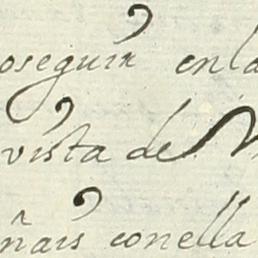 oseguir en la
vista de M
ñais con ella